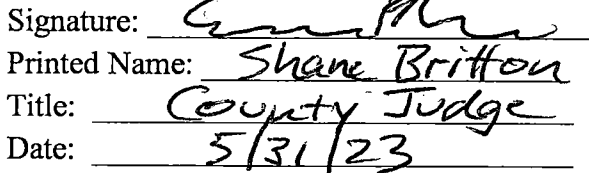 Signature:
Printed Name: Shane Britton
Title: County Judge
Date: 5/31/23